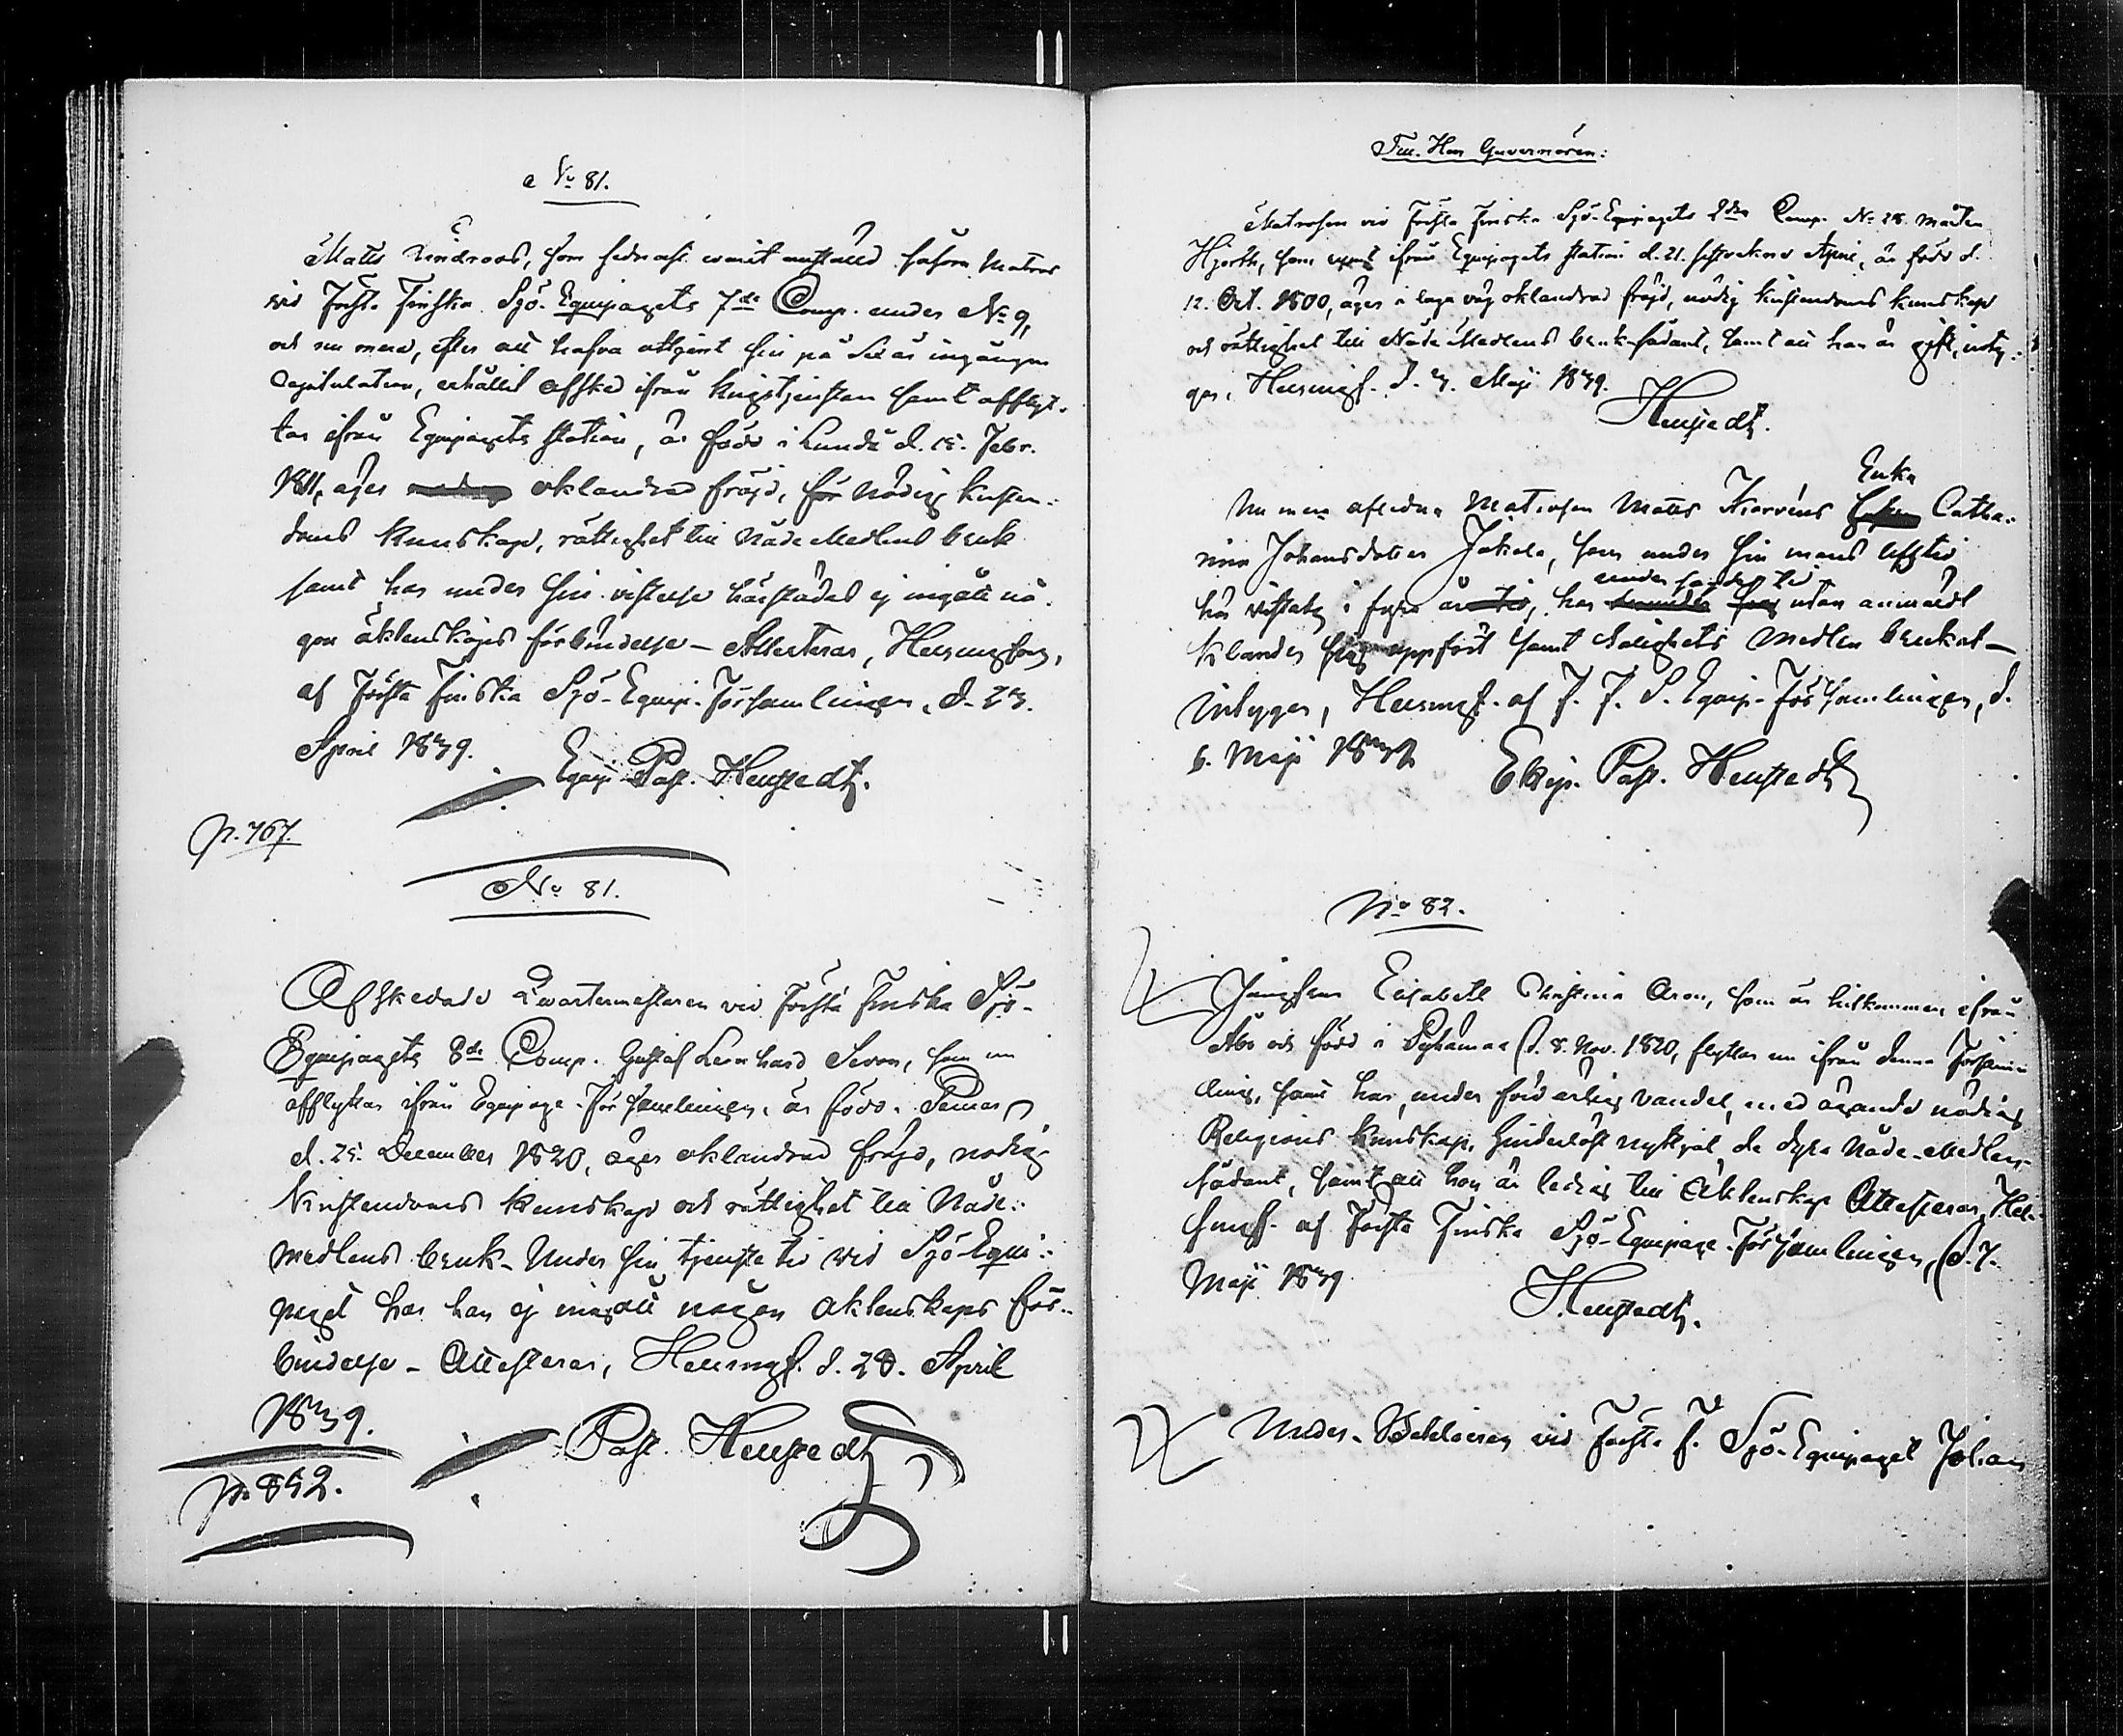 No 81.
Matts Lindroos, som sednast varit anstäld såsom Matros
vid Första Finska Sjö-Equipagets 7de Comp. under No 9,
och nu mera, efter att hafva uttjent sin på Sex år ingångna
Capitulation, erhållit afsked ifrån krigstjensten samt afflyt-
tar ifrån Equipagets station, är född i Lundå d. 15. Febr.
1811, äger oklandrad fräjd, nödig kristen-
doms kunskap, rättighet till Nåde Medlens bruk
samt har under sin vistelse härstädes ej ingått nå-
gon äktenskaps förbindelse – Attesteras, Helsingfors,
af Första Finska Sjö-Equip. Församlingen, d. 23.
April 1839. Equip. Past. Henstedt.
p. 767.
No 81.
Afskedade Quartermästaren vid Första Finska Sjö-
Equipagets 8de Comp. Gustaf Leonhard Sevon, som nu
afflyttar ifrån Equipage-Församlingen, är född i Pemar
d. 25. December 1820, äger oklandrad fräjd, nödig
Kristendoms kunskap och rättighet till Nåde-
medlens bruk – Under sin tjenste tid vid Sjö-Equi-
paget har han ej ingått någon äktenskaps för-
bindelse – Attesteras, Helsingf. d. 28. April
1839. Past. Henstedt
p. 852.
Till Herr Guvernören:
Matrosen vid Första Finska Sjö-Equipagets 2dra Comp. No 28. Mårten
Hjorth, som rymt ifrån Equipagets station d. 21. sistvekne April, är född d.
12. Oct. 1800, äger i laga väg oklandrad fräjd, nödig kristendoms kunskap
och rättighet till Nåde Medlens bruk sådant, samt att han är gift, inty-
gas, Helsingf. d. 3. Maji 1839.
Henstedt.
Enka
Nu mera aflidna Matrosen Matts Kiarvéns Catha-
rina Johansdotter Jakola, som under sin mans lifstid
under sagde tid
här vistats i fyra år, har utan anmärkt
klander sig uppfört samt Salighets Medlen brukat –
Intygar, Helsingf. af F. F. S. Equip-Församlingen, d.
6. Maji 1839 Ekip. Past. Henstedt
No 82.
Jungfrun Elisabeth Christina Aron, som är hitkommen ifrån
Åbo och född i Pyhämaa d. 8. Nov. 1820, flyttar nu ifrån denna Försam-
ling, samt har, under förd ärlig vandel, med ägande nödig
Religions kunskap, hinderlöst nyttjat de dyra Nåde-Medlen –
sådant, samt att hon är ledig till Äktenskap Attesteras, Hel-
singf. af Första Finska Sjö-Equipage-Församlingen, d. 7.
Maji 1839
Henstedt.
Under-Beklären vid Första F. Sjö-Equipaget Johan